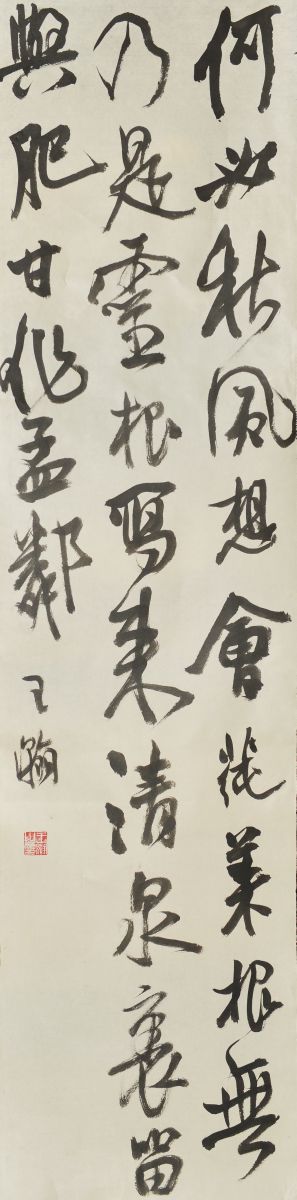 何必秋風想會蓴菜根無
乃是靈根寫來清泉裏留
與肥甘作孟鄰
王瀚